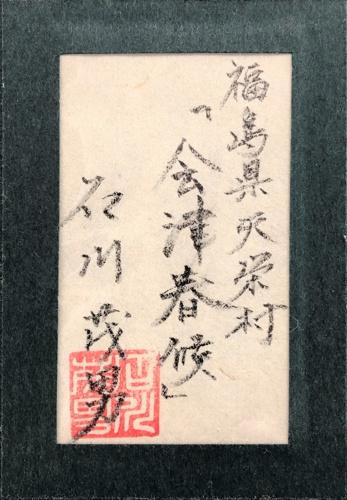 福島県天栄村
「会津春候」
石川茂男